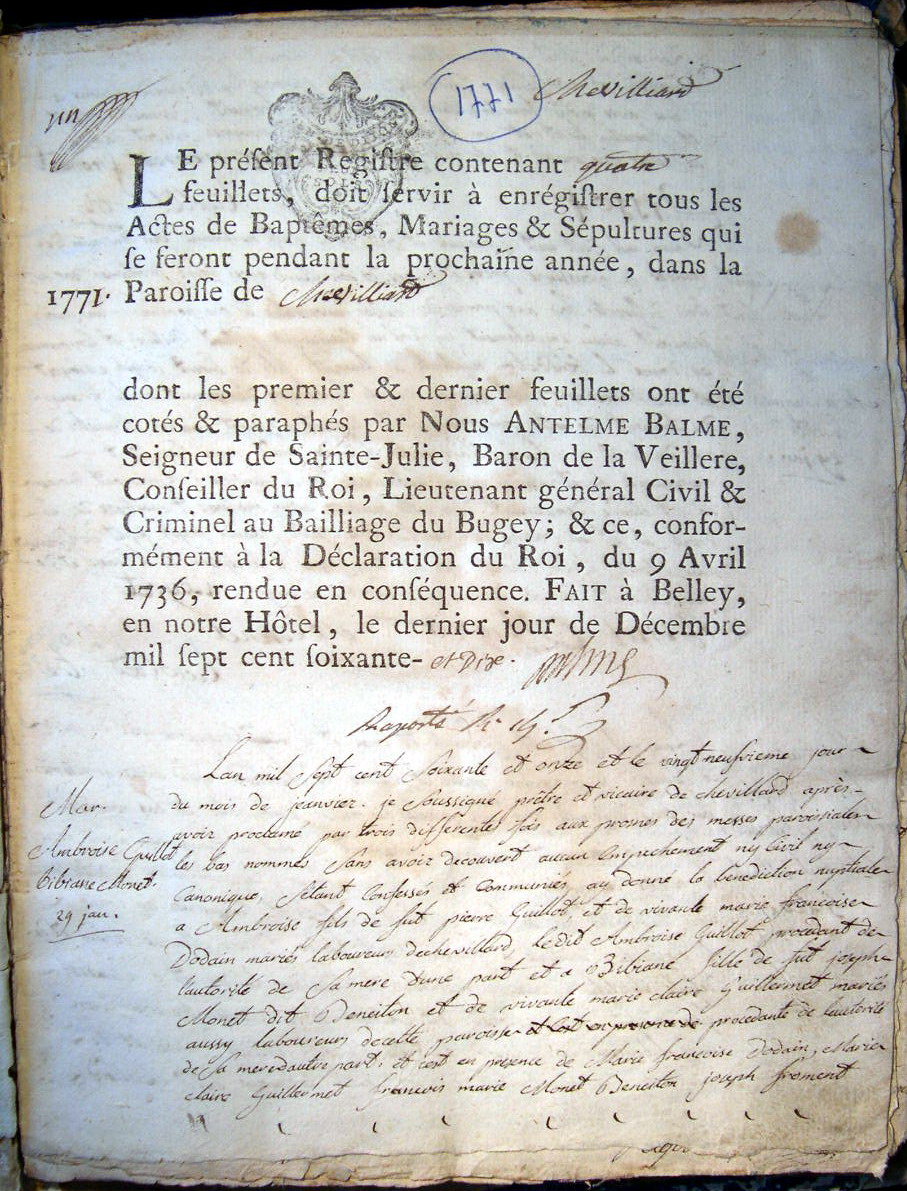 un
1771
Chevilliard
LE préſent Regiſtre contenant quatre
feuillets, doit ſervir à enrégiſtrer tous les
Actes de Baptêmes, Mariages & Sépultures qui
ſe feront pendant la prochaine année, dans la
1771. Paroiſſe de Chevilliard
dont les premier & dernier feuillets ont été
cotés & paraphés par Nous ANTELME BALME,
Seigneur de Sainte-Julie, Baron de la Veillere,
Conſeiller du Roi, Lieutenant général Civil &
Criminel au Bailliage du Bugey; & ce, confor-
mément à la Déclaration du Roi, du 9 Avril
1736, rendue en conſéquence. FAIT à Belley,
en notre Hôtel, le dernier jour de Décembre
mil ſept cent ſoixante- et Dix.
Raporté
Mar.
Ambroise Guillot
bibiane Monet.
29 jan.
Lan mil Sept cent Soixante et onze et le vingt neufvieme jour
du mois de janvier. je Soussigné prêtre et vicaire de chevillard après
avoir proclamé par trois differentes fois aux prones des messes paroisiales
les bas nommés Sans avoir decouvert aucun Empechement ny Civil ny
Canonique, S'étant Confessés et Communiés, ay donné la benediction nuptiale
a Ambroise fils de fut pierre Guillot, et de vivante marie francoise
Dodain mariés laboureurs dechevillard, ledit Ambroise Guillot procedant de
l'autorité de Sa mere dune part et a Bibiane fille de fut joseph
Monet dit Beneiton et de vivante marie claire Guillermet mariés
aussy laboureurs decette paroisse et cest en presence de procedante de lautorité
de Sa mere dautre part. et cest en presence de Marie francoise Dodain, Marie
claire Guillermet francois marie Monet Beneiton joseph froment